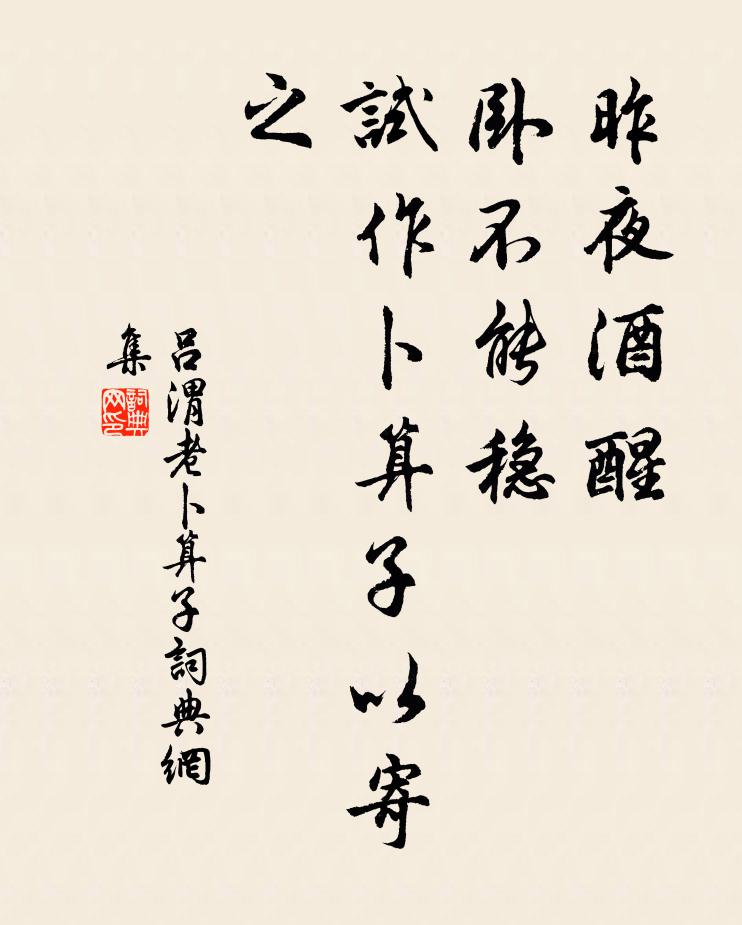 昨夜酒醒
卧不能稳
試作卜算子以寄
之
吕渭老卜算子詞典網
集
詞典
网印